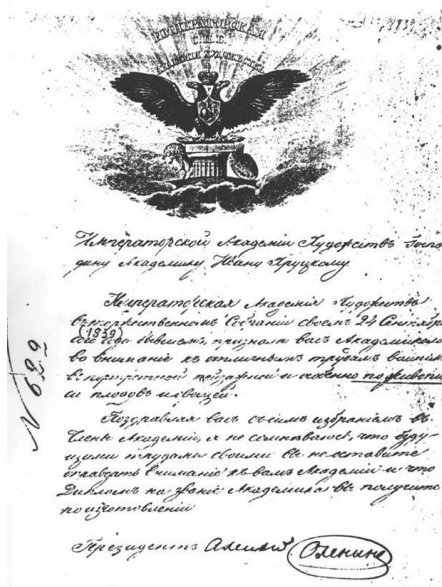 ИМПЕРАТОРСКАЯ
С.П.Б.
АКАДЕМІЯ ХУДОЖЕСТВЪ
1839
Императорской Академіи Художествъ Госпо-
дину Академику Ивану Хруцкому
Императорская Академія Художествъ
въ торжественномъ Собраніи своемъ 24 Сентября
(1839)
сего года бывшемъ, признала васъ Академикомъ
во вниманіе къ отличнымъ трудамъ вашимъ
въ портретной пейзажной и особенно по живопи-
си плодовъ и овощей.
Поздравляя васъ съ симъ избраніемъ въ
Члены Академіи, я не сомнѣваюсь, что буду-
щими трудами своими вы не оставите
вниманіе къ вамъ Академіи и что
Дипломъ на званіе Академика вы получите
по изготовленіи
Президентъ Алексѣй Оленинъ
N 629